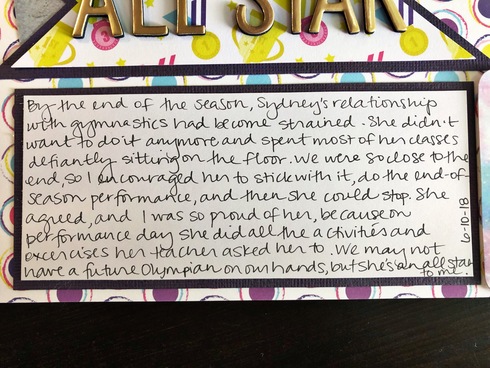 ALL STAR
By the end of the season, Sydney's relationship
with gymnastics had become strained. She didn't
want to do it anymore and spent most of her classes
defiantly sitting on the floor. We were so close to the
end, so I encouraged her to stick with it, do the end-of-
season performance, and then she could stop. She
agreed, and I was so proud of her, because on
performance day she did all the activities and
exercises her teacher asked her to. We may not
have a future Olympian on our hands, but she's an all star
to me.
6-10-18